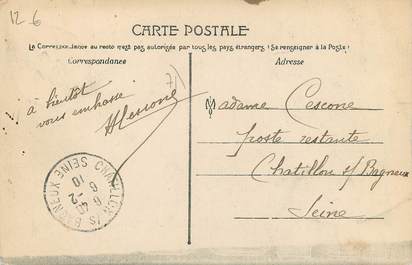 12-6
CARTE POSTALE
Le Correspondance au recto n'est pas autorisée par tous les pays étrangers (Se renseigner à la Poste)
Correspondance
Adresse
à bientôt
vous embrasse
Madame Cescone
poste restante
Chatillon s/ Bagneux
Seine
CHATILLON S/S BAGNEUX SEINE
6-2
10